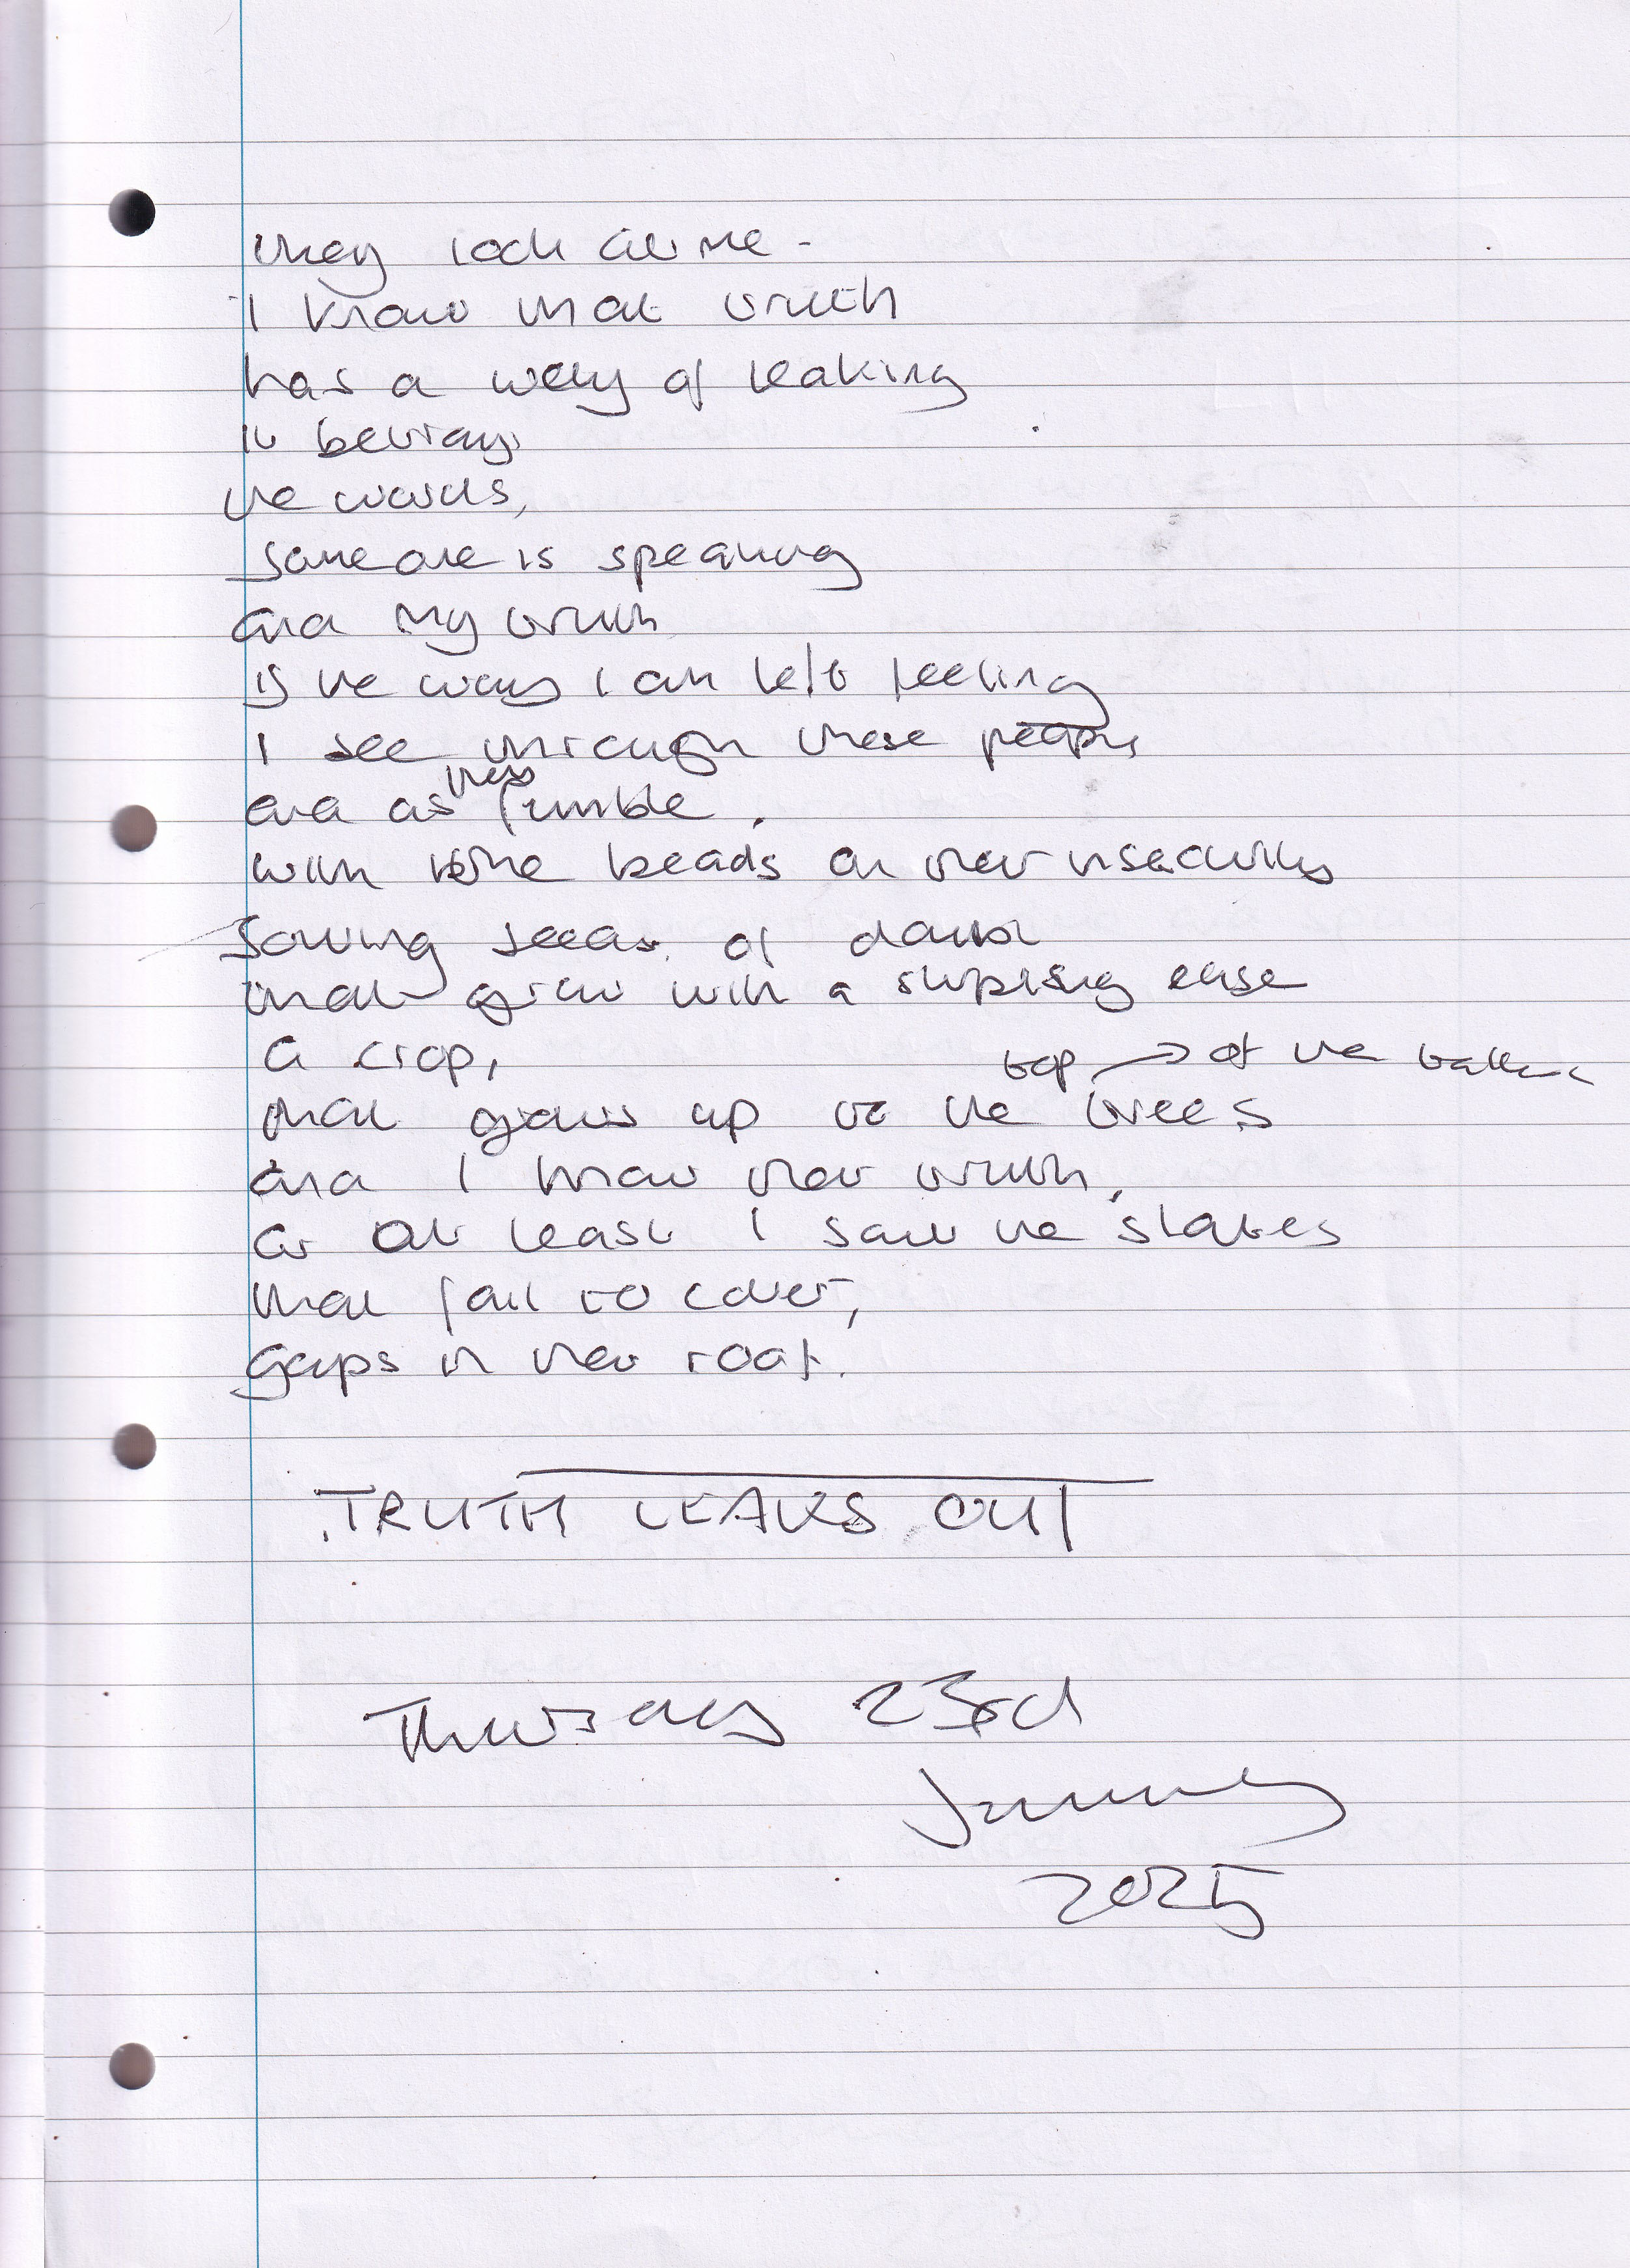 they look at me -
I know that truth
has a way of leaking
it betrays
the words,
someone is speaking
and my truth
is the ways I am left feeling
I see through these people
and as they fumble
with the beads on their insecurities
sowing seeds of doubt
that grow with a surprising ease
a crop,
top → of the
that grows up to the trees
and I know their truth,
or at least I saw the slates
that fail to cover,
gaps in their roof.
TRUTH LEAKS OUT
Thursday 23rd
January
2025